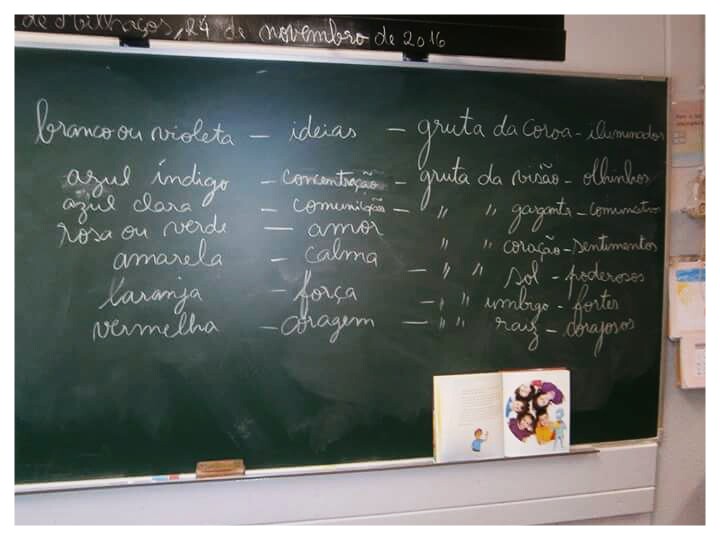 de Milhaços, 24 de novembro de 2016
branco ou violeta — ideias — gruta da Coroa - iluminador
azul índigo — concentração — gruta da visão - olhinhos
azul clara — comunicação — " " garganta - comunicativo
rosa ou verde — amor " " coração - sentimentos
amarela - calma — " " sol - poderosos
laranja - força — " " umbigo - fortes
vermelha — coragem — " " raiz - corajosos